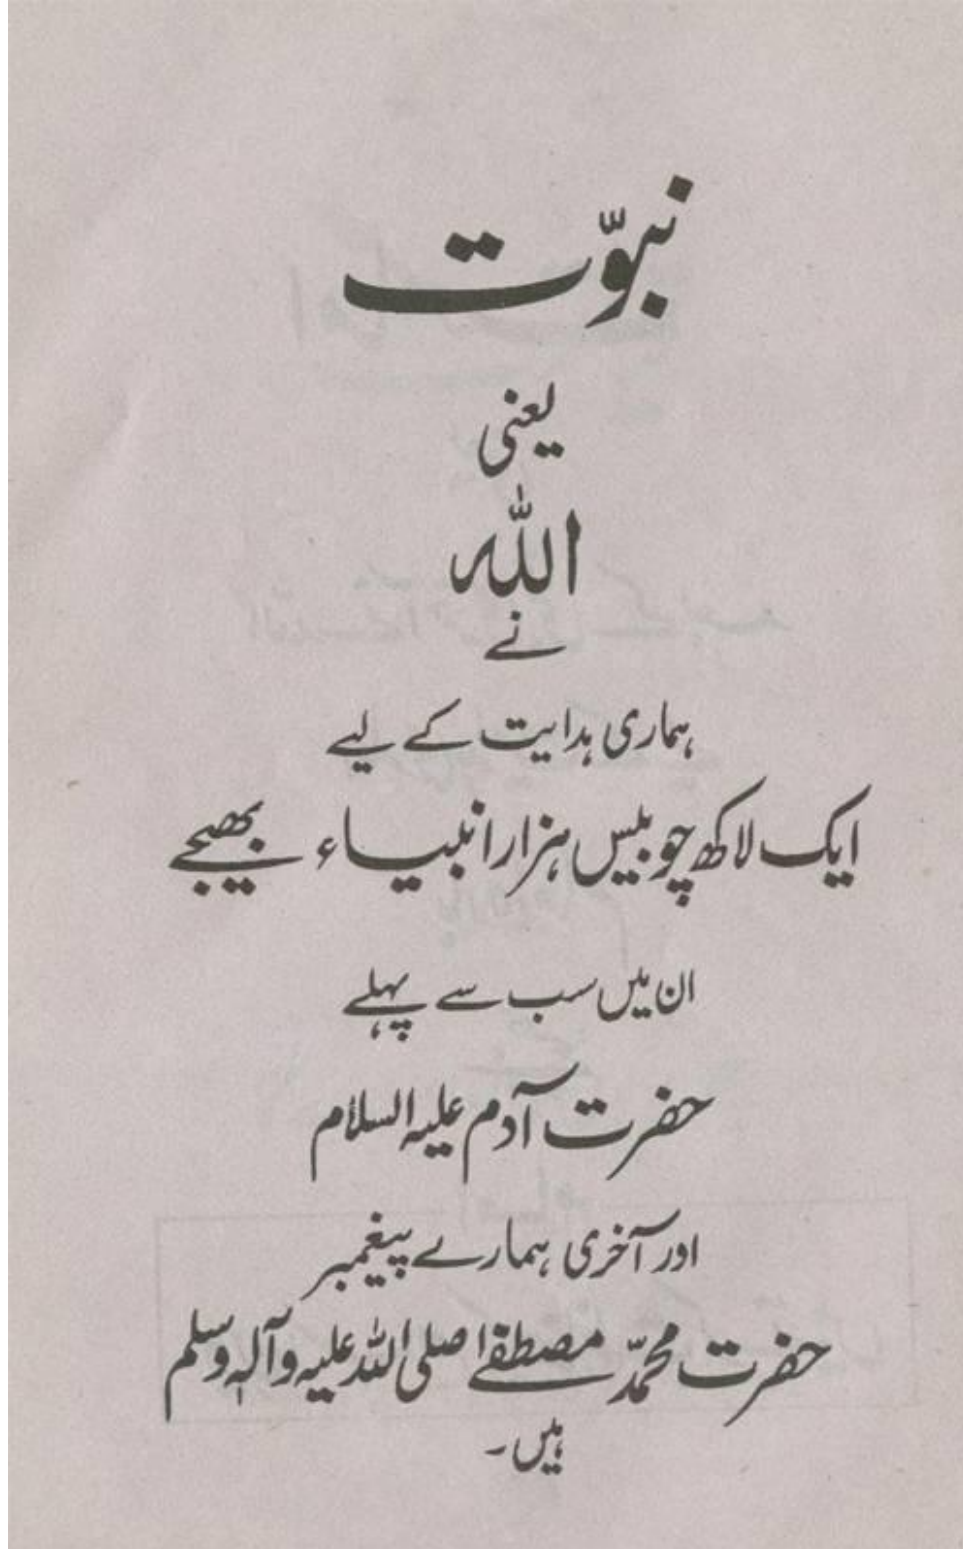 نبوّت
یعنی
اللہ
نے
ہماری ہدایت کے لیے
ایک لاکھ چوبیس ہزار انبیاء بھیجے
ان میں سب سے پہلے
حضرت آدم علیہ السلام
اور آخری ہمارے پیغمبر
حضرت محمدّ مصطفےٰ صلی اللہ علیہ وآلہٖ وسلم
ہیں۔